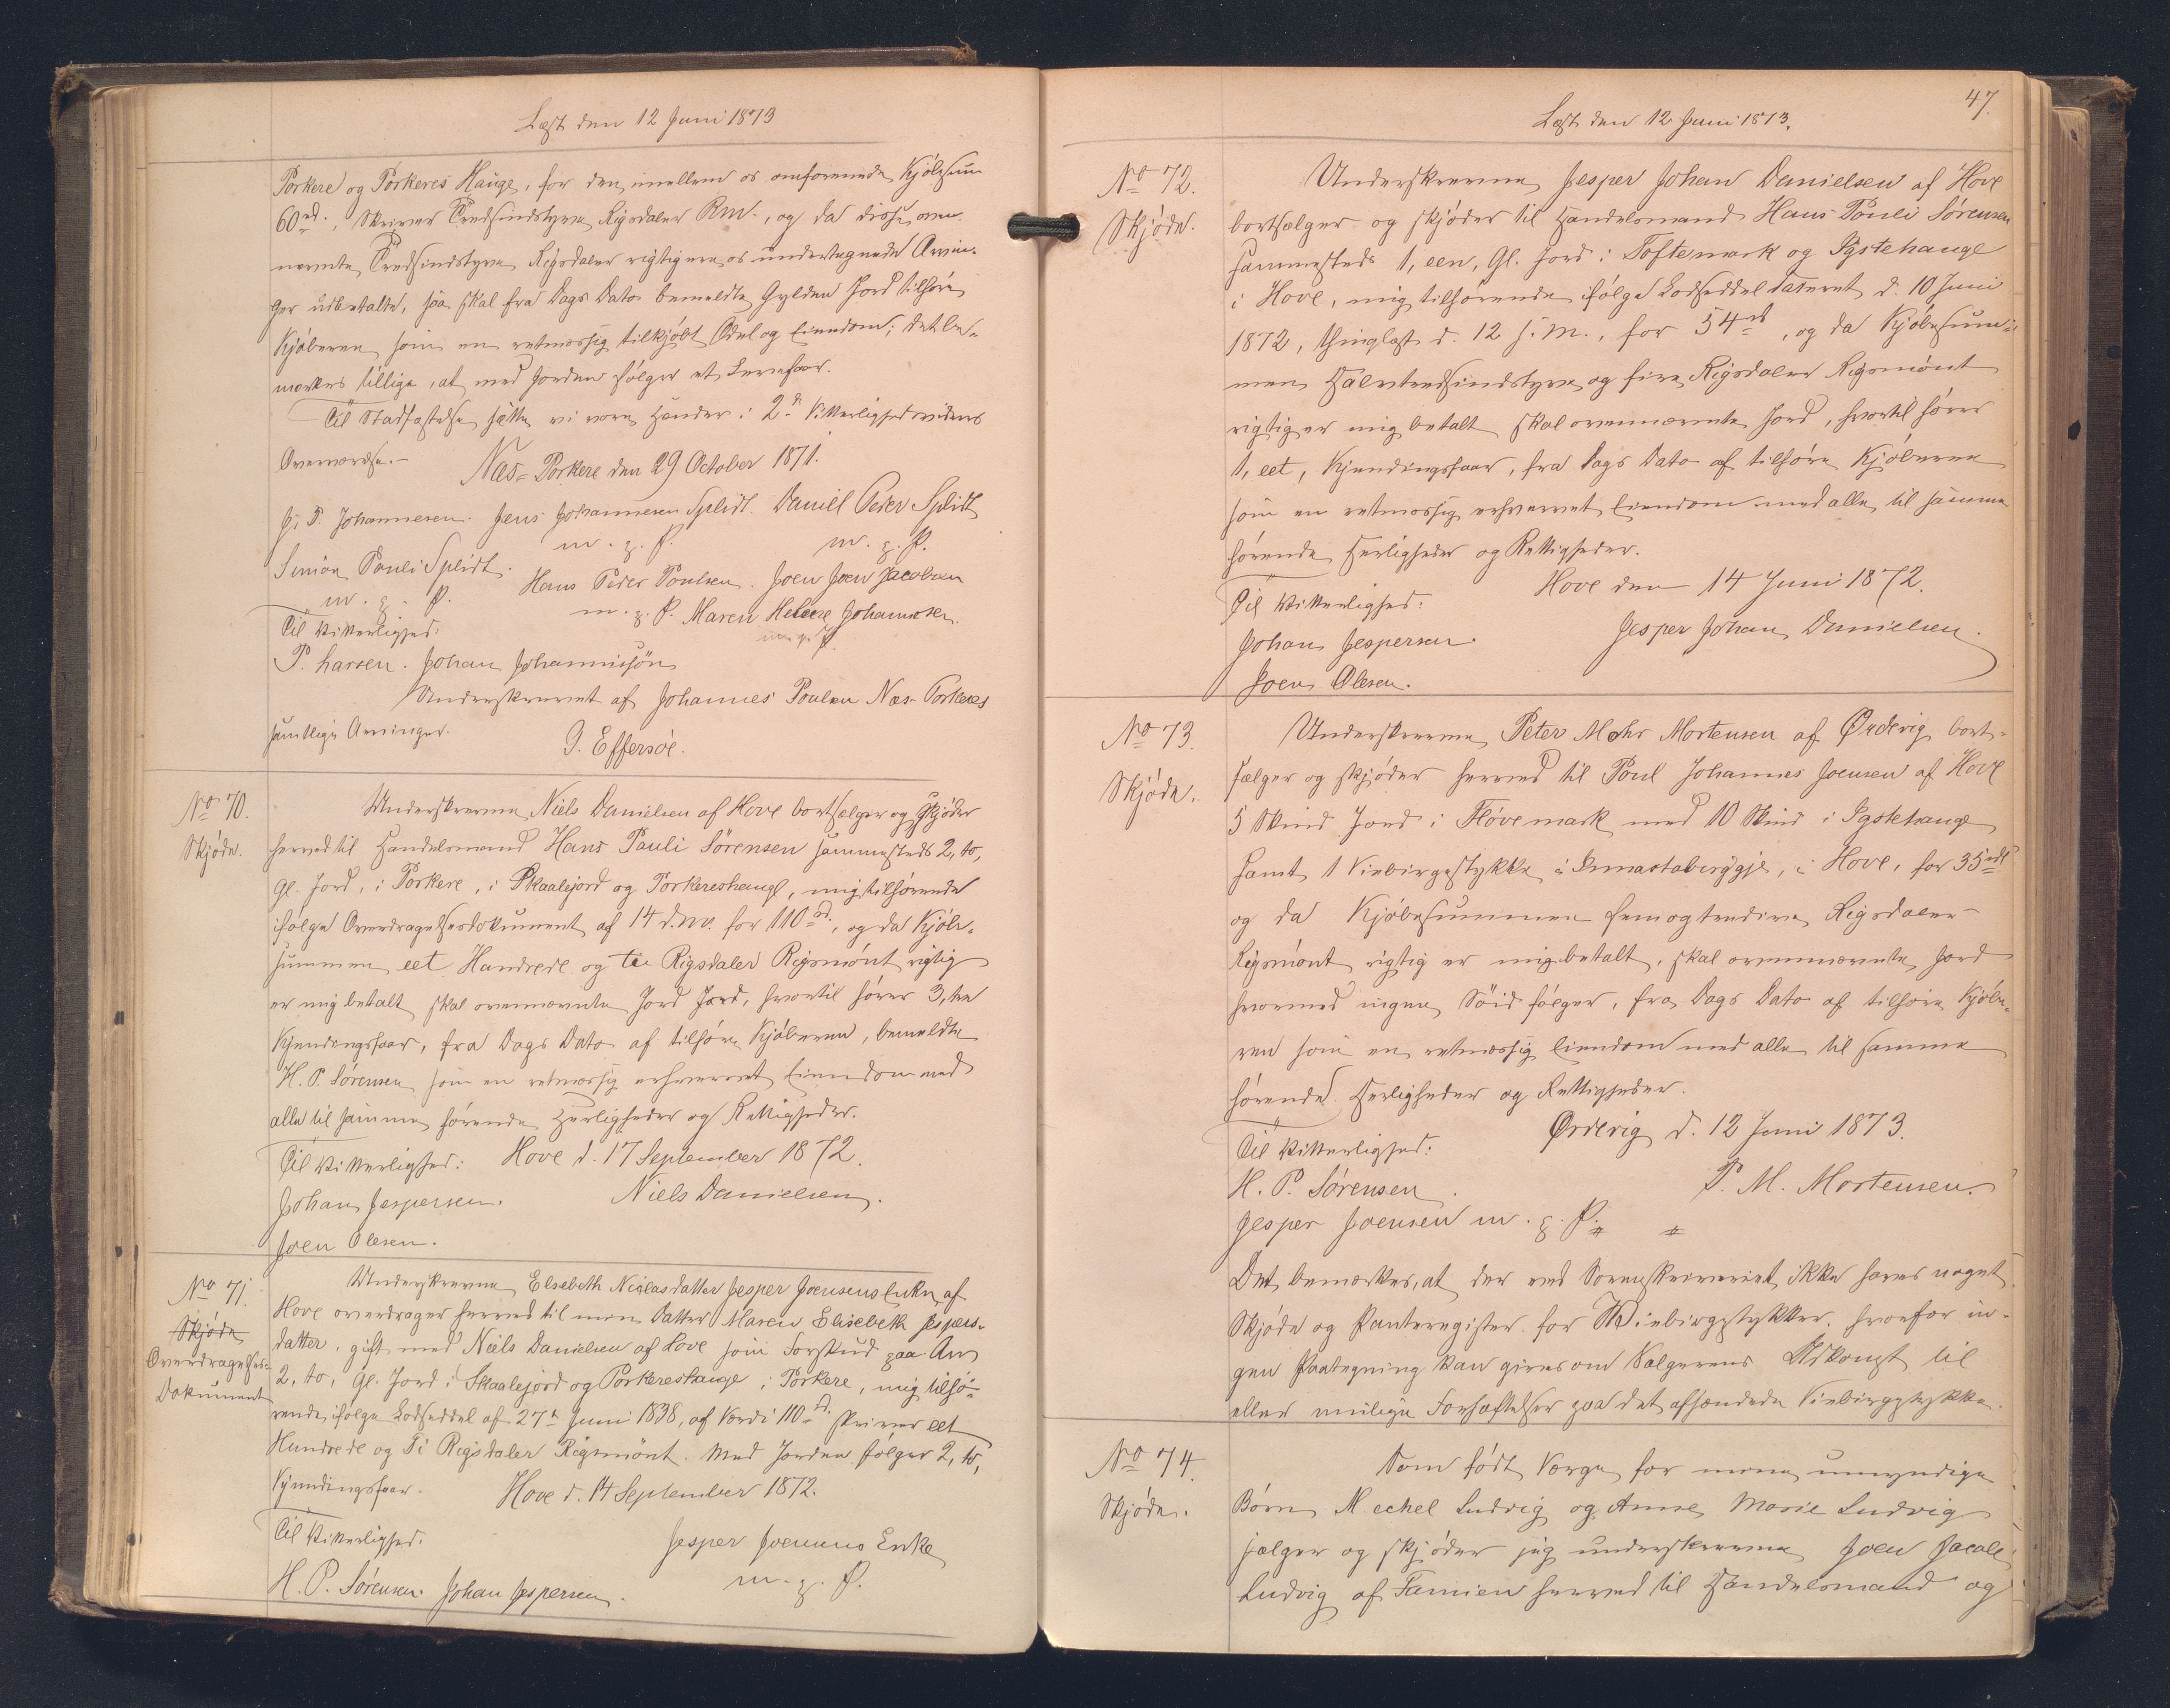 Læst den 12 Juni 1873
Porkere og Porkeres Hauge, for den imellem os omforenede Kjöbesum
60 rd., skriver Tredsindstyve Rigsdaler Rm., og da disse oven-
nævnte Tredsindstyve Rigsdaler rigtig ere os undertegnede Arvin-
ger udbetalte, saa skal fra Dags Dato bemeldte Gylden Jord tilhöre
Kjöberen som en retmæssig tilkjöbt Odel og Eiendom; det be-
mærkes tillige, at med Jorden fölger et Lerefaar.
Til Stadfæstelse sætte vi vore Hænder i 2de Vitterlighedsvidners
Overværelse.-
Næs-Porkere den 29 October 1871.
J. P. Johannesen. Jens Johannesen Splidt. Daniel Peder Splidt
m. g. P. m. g. P.
Simön Pouli Splidt. Hans Peder Poulsen. Joen Joen Jacobsen
m. g. P. m. g. P. Maren Helene Johannesen.
Til Vitterlighed: m. g. P.
P. Larsen. Johan Johannissön
Underskrevet af Johannes Poulsen Næs-Porkeres
samtlige Arvinger.
G. Effersöe.
No 70.
Skjöde.
Underskrevne Niels Danielsen af Hove bortsælger og skjöder
herved til Handelsmand Hans Pauli Sörensen sammesteds 2, to,
Gl. Jord, i Porkere, i Skaalejord og Porkereshauge, mig tilhörende
ifölge Overdragelsesdokument af 14 d. M. for 110 rd., og da Kjöbe-
summen eet Hundrede og tie Rigsdaler Rigsmönt rigtig
er mig betalt skal ovennævnte Jord Jord, hvortil hörer 3, tre
Kjendingsfaar, fra Dags Dato af tilhöre Kjöberen, bemeldte
H. P. Sörensen som en retmæssig erhvervet Eiendom med
alle til samme hörende Herligheder og Rettigheder.
Til Vitterlighed: Hove d. 17 September 1872.
Johan Jespersen. Niels Danielsen.
Joen Olesen.
No 71.
Skjöde
Overdragelses-
Dokument
Underskrevne Elsebeth Niclasdatter Jesper Joensens Enke, af
Hove overdrager herved til min Datter Maren Elisebeth Jespers-
datter, gift med Niels Danielsen af Hove som Forskud paa Arv
2, to, Gl. Jord i Skaalejord og Porkereshauge i Porkere, mig tilhö-
rende ifölge Lodseddel af 27de Juni 1838, af Værdi 110 rd. skriver eet
Hundrede og Ti Rigsdaler Rigsmönt. Med Jorden fölger 2, to,
Kjendingsfaar. Hove d. 14 September 1872.
Til Vitterlighed. Jesper Joensens Enke
H. P. Sörensen. Johan Jespersen. m. g. P.
47.
Læst den 12 Juni 1873.
No 72.
Skjöde.
Underskrevne Jesper Johan Danielsen af Hove
bortsælger og skjöder til Handelsmand Hans Pouli Sörensen
sammesteds 1, een, Gl. Jord i Toftemark og Igstehauge
i Hove, mig tilhörende ifölge Lodseddel dateret d. 10 Juni
1872, thinglæst d. 12 s. M., for 54 rd, og da Kjöbesum-
men Halvtredsindstyve og fire Rigsdaler Rigsmönt
rigtig er mig betalt skal ovennævnte Jord, hvortil hörer
1, eet, Kjendingsfaar, fra Dags Dato af tilhöre Kjöberen
som en retmæssig erhvervet Eiendom med alle til samme
hörende Herligheder og Rettigheder.
Hove den 14 Juni 1872.
Til Vitterlighed:
Johan Jespersen. Jesper Johan Danielsen.
Joen Olesen.
No 73.
Skjöde.
Underskrevne Peter Mohr Mortensen af Ørdevig bort-
sælger og skjöder herved til Poul Johannes Joensen af Hove
5 Skind Jord i Flövemark med 10 Skind i Igstehauge
samt 1 Kiebirgestykke i , i Hove, for 35 rdl
og da Kjöbesummen femogtredive Rigsdaler
Rigsmönt rigtig er mig betalt, skal ovennævnte Jord
hvormed ingen Söid fölger, fra Dags Dato af tilhöre Kjöbe-
ren som en retmæssig Eiendom med alle til samme
hörende Herligheder og Rettigheder.
Ørdevig d. 12 Juni 1873.
Til Vitterlighed:
H. P. Sörensen. P. M. Mortensen.
Jesper Joensen m. g. P.
Det bemærkes, at der ved Sorenskriveriet ikke haves noget
Skjöde og Panteregister for Kiebirgstykker, hvorfor in-
gen Paategning kan gives om Sælgerens Adkomst til
eller mulige Forhæftelser paa det afhændede Kiebirgstykke.
No 74.
Skjöde.
Som födt Værge for mine umyndige
Börn Mechel Ludvig og Anne Marie Ludvig
sælger og skjöder jeg underskrevne Joen Jacob
Ludvig af Famien herved til Handelsmand og